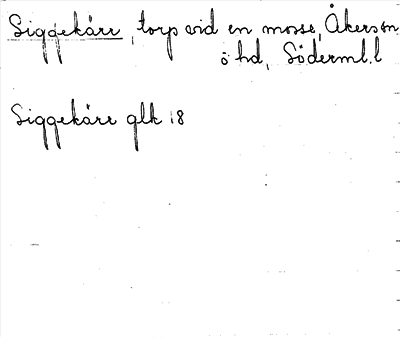 Siggekärr, torp vid en mosse, Åkers sn
ö hd, Söderml. l
Siggekärr glk 18